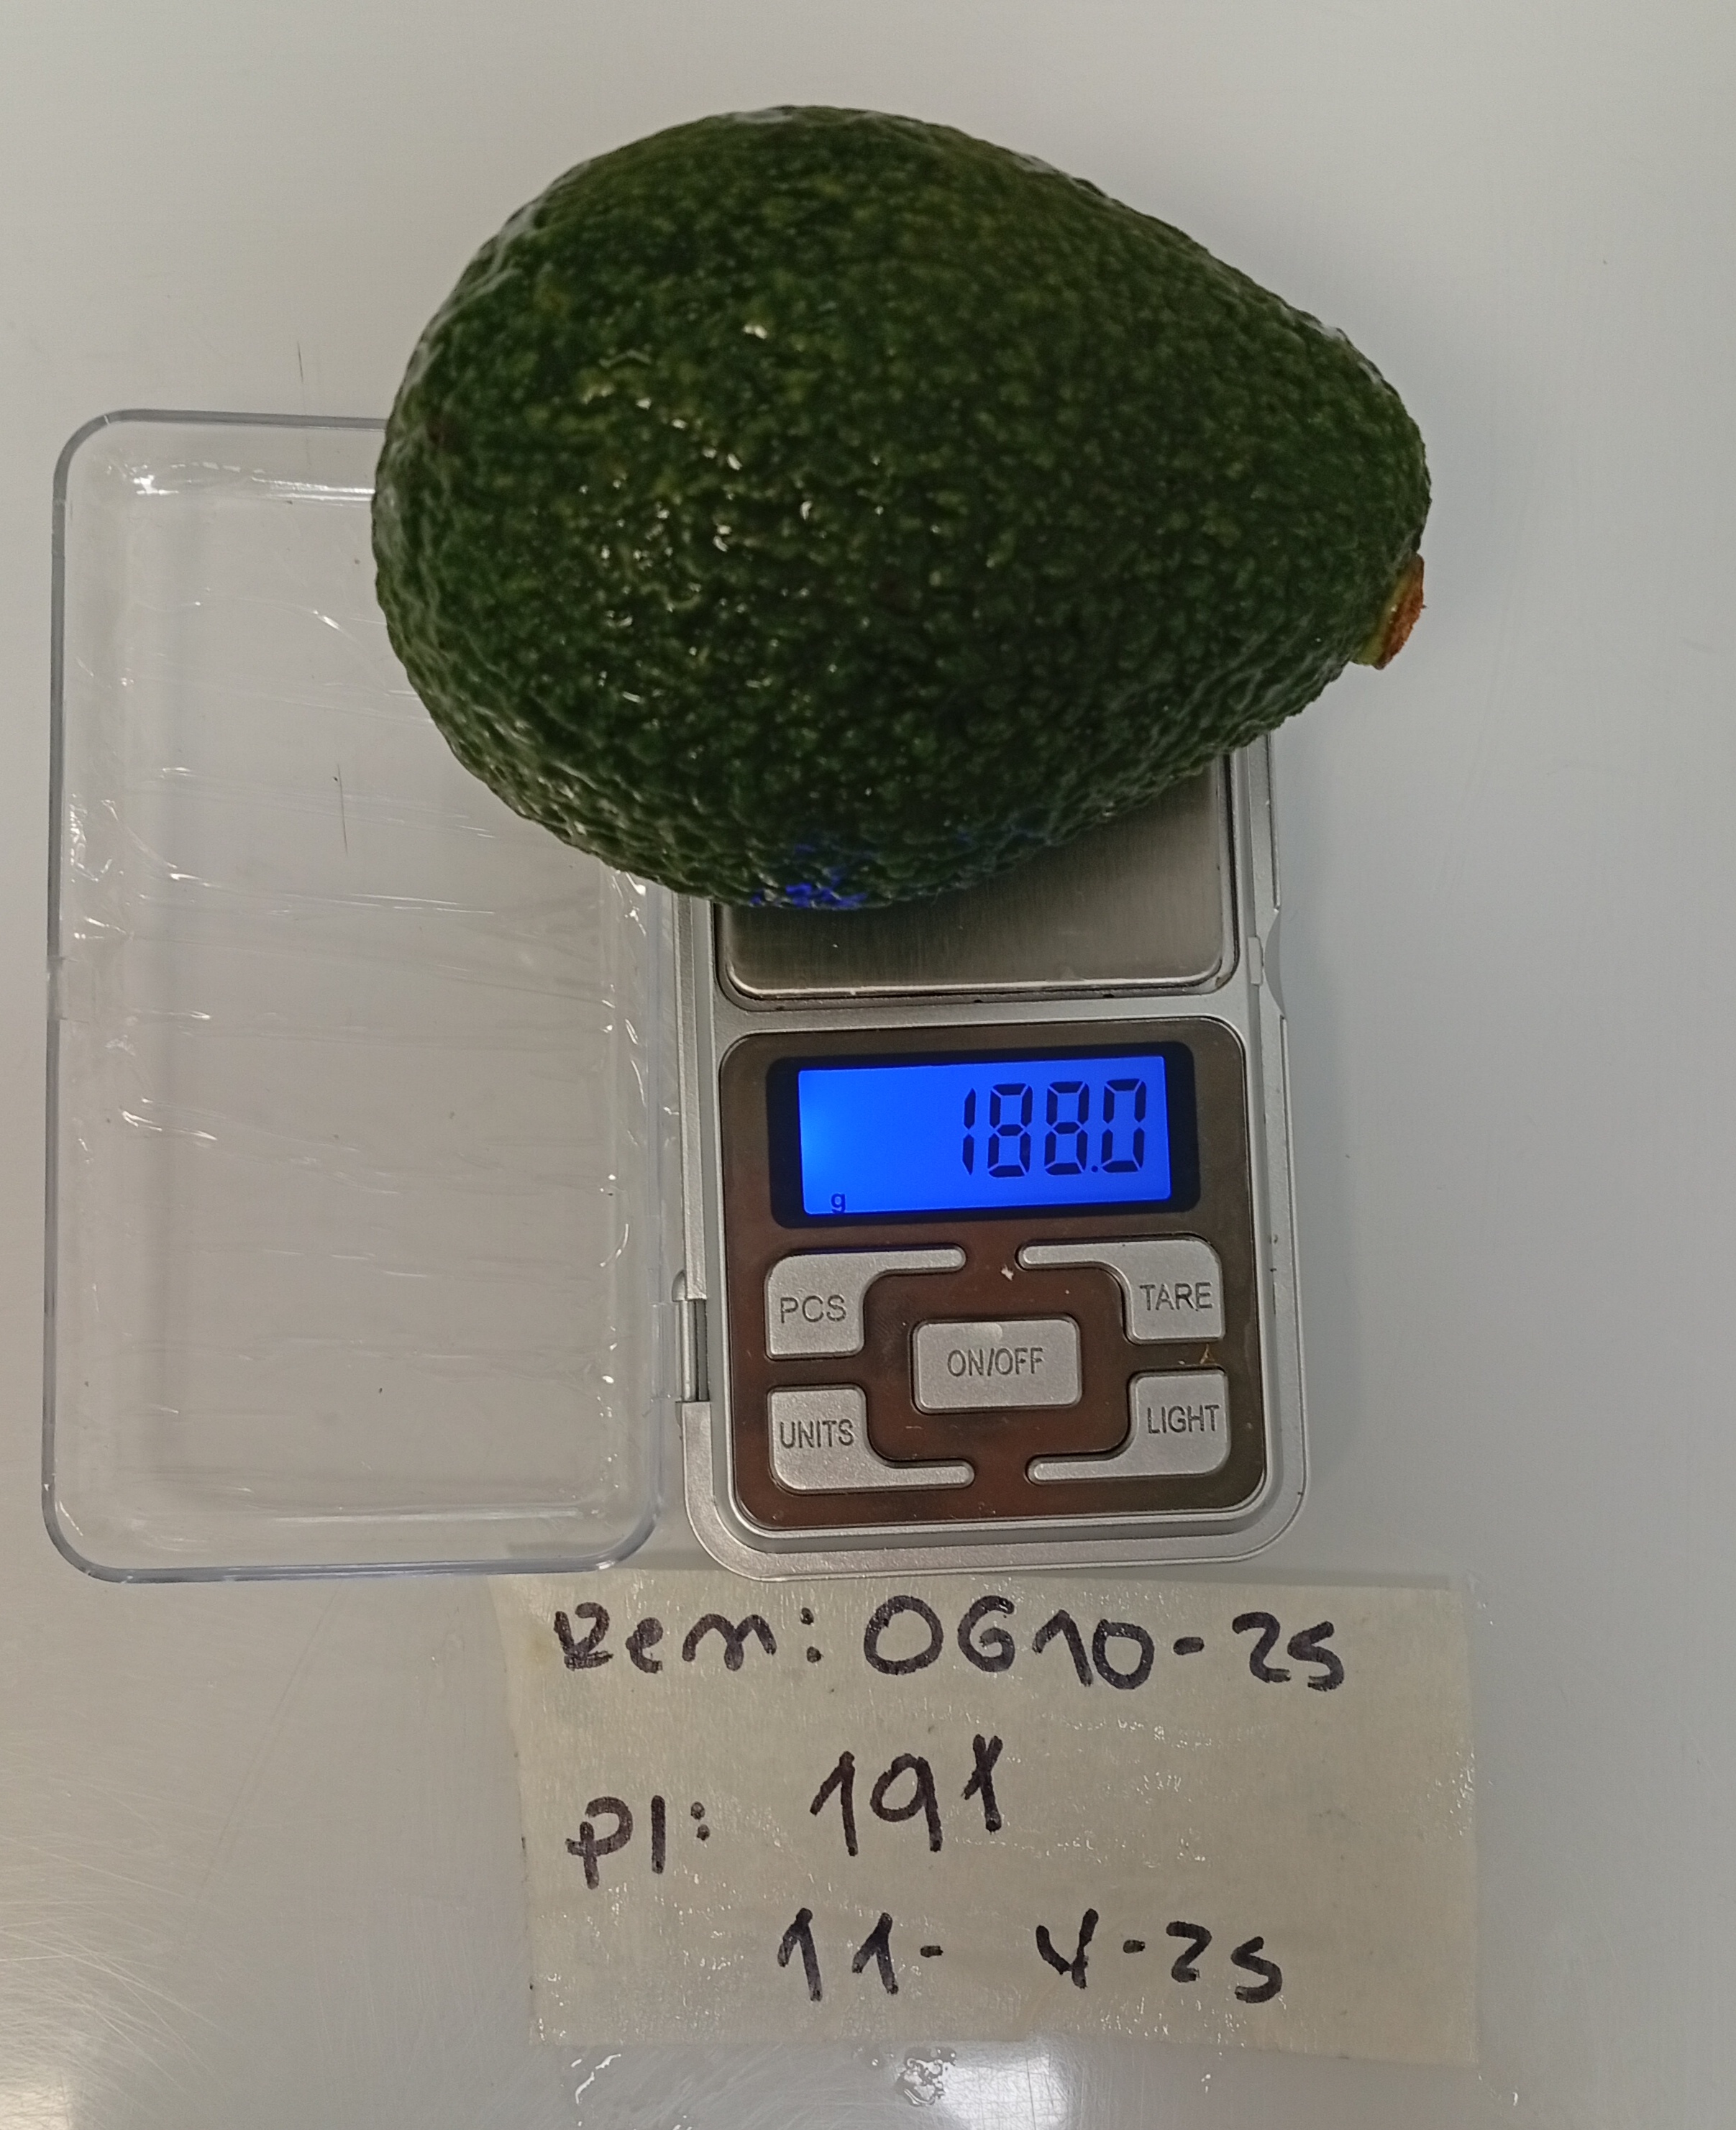 188.0
g
PCS
TARE
ON/OFF
UNITS
LIGHT
Rem: 0610-25
Pl: 191
11- V-25